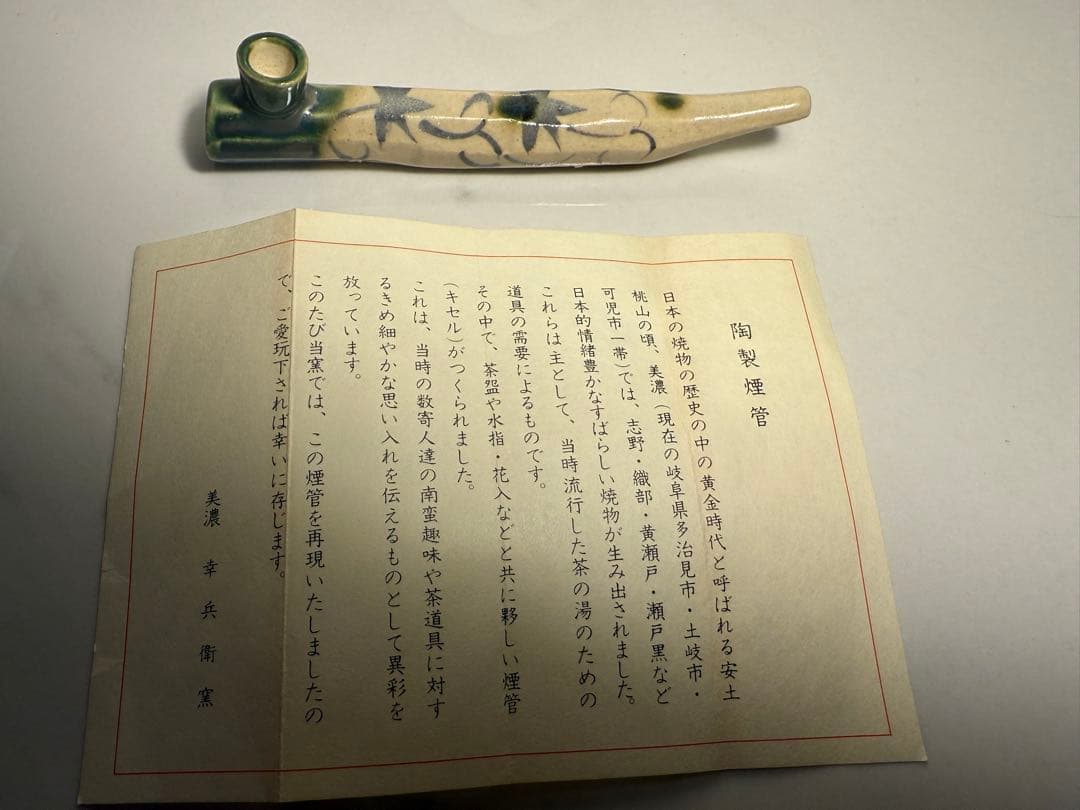 陶製煙管
日本の焼物の歴史の中の黄金時代と呼ばれる安土
桃山の頃、美濃(現在の岐阜県多治見市・土岐市・
可児市一帯)では、志野・織部・黄瀬戸・瀬戸黒など
日本的情緒豊かなすばらしい焼物が生み出されました。
これらは主として、当時流行した茶の湯のための
道具の需要によるものです。
その中で、茶盌や水指・花入などと共に夥しい煙管
(キセル)がつくられました。
これは、当時の数寄人達の南蛮趣味や茶道具に対す
るきめ細やかな思い入れを伝えるものとして異彩を
放っています。
このたび当窯では、この煙管を再現いたしましたの
で、ご愛玩下されば幸いに存じます。
美濃 幸兵衛窯